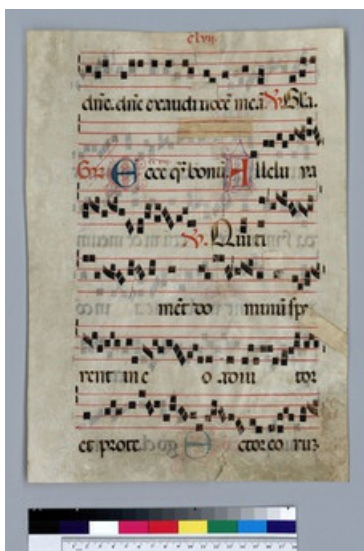 clvij.
dñe. dñe exaudi uocē meā. ℣. Gla.
Gr̃. Ecce qͣ bonū. Allelu ya
℣. Qui ti
mēt do minū spe
rent in e o adiu tor
et prote ctor eo rum